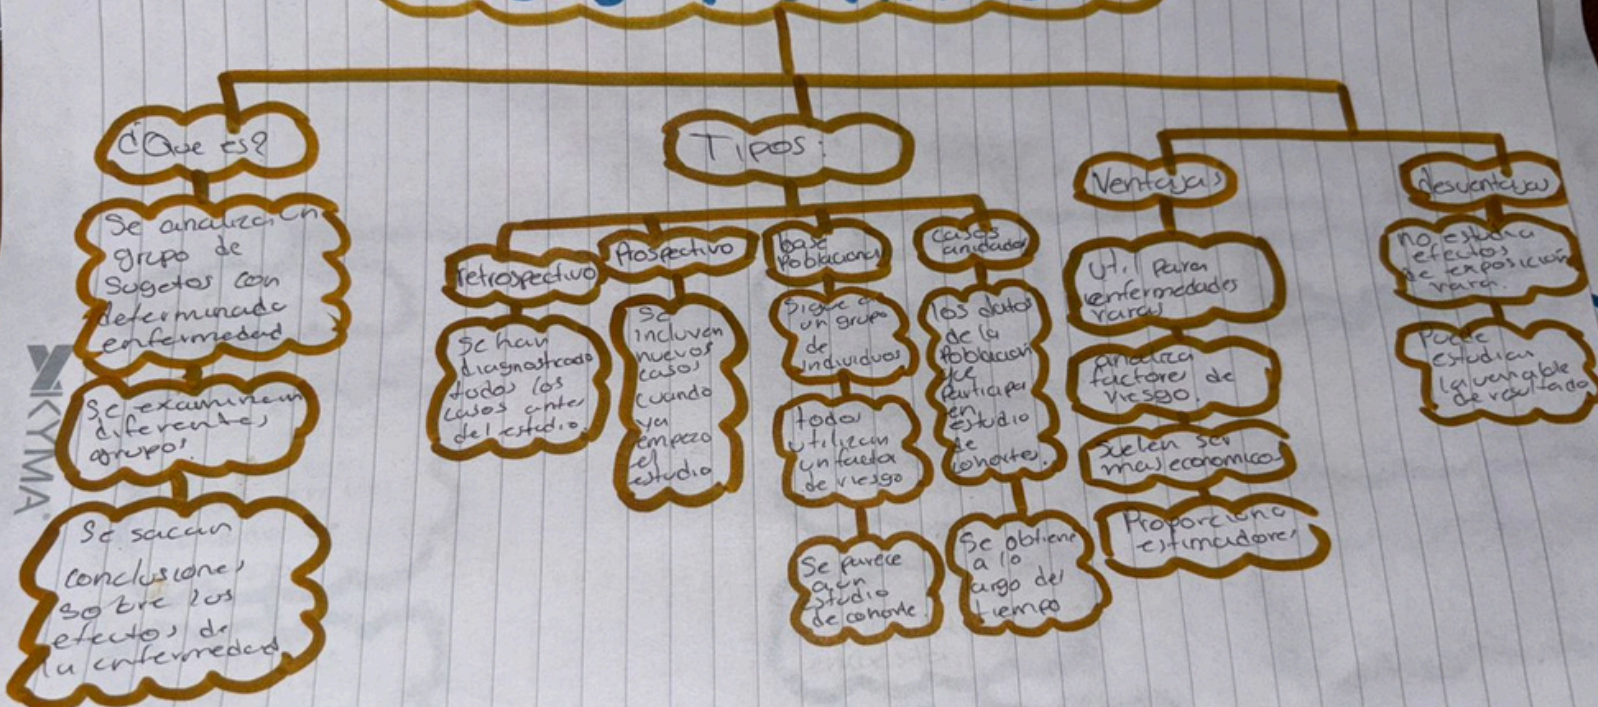 ¿Que es?
Se analiza un
grupo de
Sugetos con
determinada
enfermedad
Se examinan
diferentes
grupos.
Se sacan
conclusiones
sobre los
efectos de
la enfermedad
Tipos:
retrospectivo
Se han
diagnosticado
todos los
casos antes
del estudio.
Prospectivo
Se
incluyen
nuevos
casos
cuando
ya
empezo
el
estudio
base
Poblacional
Sigue a
un grupo
de
individuos
todos
utilizan
un factor
de riesgo
Se parece
a un
estudio
de cohorte.
casos
anidados
los datos
de la
Poblacion
que
Participa
en
estudio
de
cohortes.
Se obtiene
a lo
largo del
tiempo
Ventajas
Util para
enfermedades
raras
analiza
factores de
riesgo.
Suelen ser
mas economicos
Proporciona
estimadores
desventajas
no estudia
efectos
de exposicion
rara.
Puede
estudiar
la variable
de resultado
KYMA